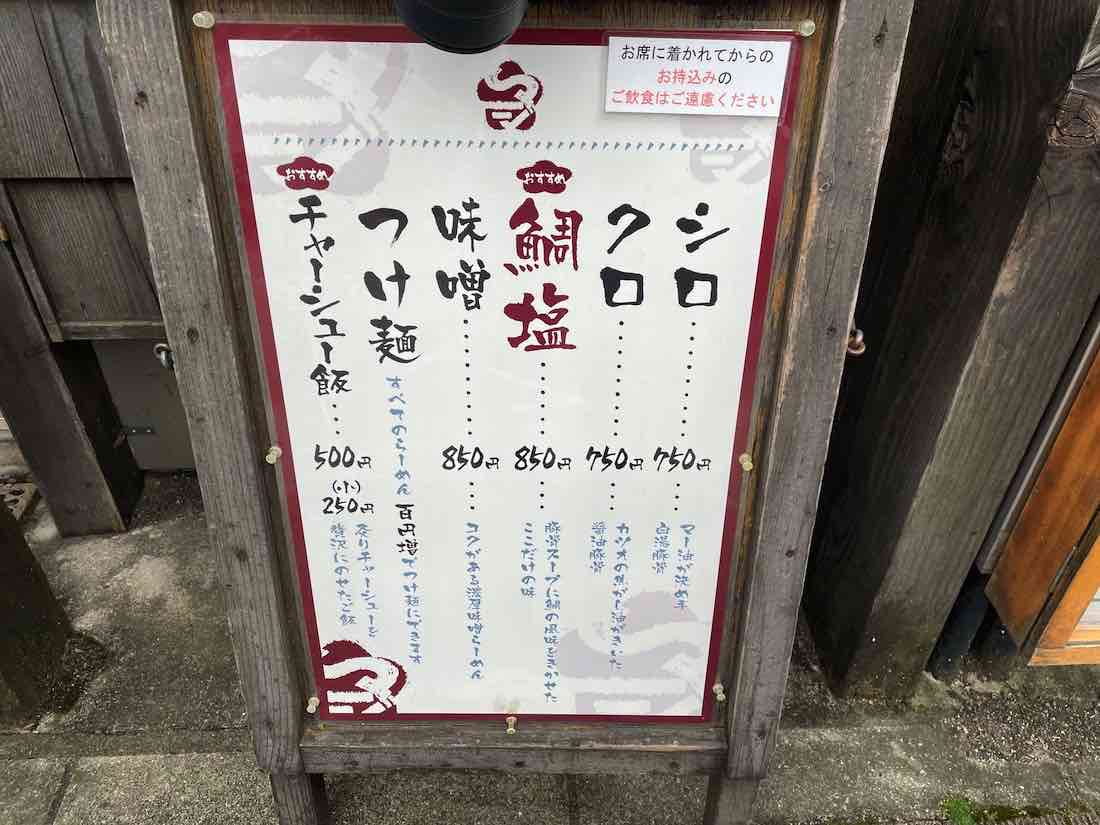 お席に着かれてからの
お持込みの
ご飲食はご遠慮ください
シロ……750円…
マー油が決め手
白湯豚骨
クロ……750円…
カツオの焦がし油がきいた
醤油豚骨
おすすめ
鯛塩……850円…
豚骨スープに鯛の風味をきかせた
ここだけの味
味噌……850円…
コクがある濃厚味噌らーめん
つけ麺
すべてのらーめん百円増でつけ麺にできます
おすすめ
チャーシュー飯…500円
(小)
250円
炙りチャーシューを
贅沢にのせたご飯